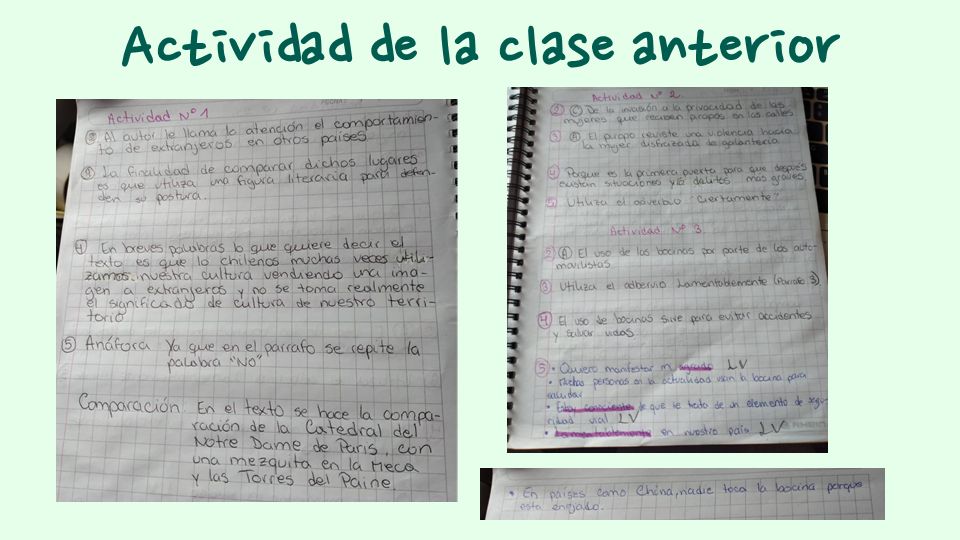 Actividad de la clase anterior
Actividad N° 1
② Al autor le llama la atención el comportamien-
to de extranjeros en otros países
③ La finalidad de comparar dichos lugares
es que utiliza una figura literaria para defen-
den su postura.
④ En breves palabras lo que quiere decir el
texto es que lo chilenos muchas veces utili-
zamos nuestra cultura vendiendo una ima-
gen a extranjeros y no se toma realmente
el significado de cultura de nuestro terri-
torio
⑤ Anáfora Ya que en el parrafo se repite la
palabra "NO"
Comparación: En el texto se hace la compa-
ración de la Catedral del
Notre Dame de Paris, con
una mezquita en la Meca
y las Torres del Paine.
Actividad N° 2
② Ⓒ De la invasión a la privacidad de las
mujeres que reciben piropos en las calles
③ Ⓐ El piropo reviste una violencia hacia
la mujer disfrazada de galantería
④ Porque es la primera puerta para que después
existan situaciones y/o delitos más graves
⑤ Utiliza el adverbio "Ciertamente"
Actividad N° 3
② Ⓐ El uso de las bocinas por parte de los auto-
movilistas
③ Utiliza el adbervio Lamentablemente (Párrafo 3)
④ El uso de bocinas sirve para evitar accidentes
y salvar vidas
⑤ • Quiero manifestar mi agrado LV
• Muchas personas en la actualidad usan la bocina para
saludar
• Estoy consciente de que se trata de un elemento de segu-
ridad vial LV
• Lamentablemente en nuestro país LV
• En países como China, nadie toca la bocina porque
esta enojado.